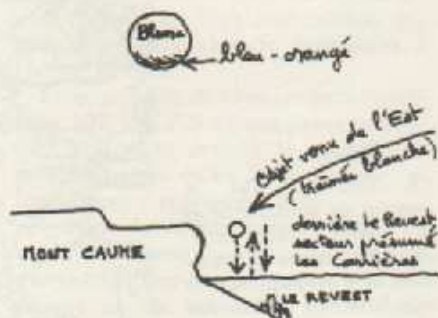 Blanc
bleu-orangé
Objet venu de l'Est
(traînée blanche)
derrière le Revest
secteur présumé
les Carrières
MONT CAUME
LE REVEST